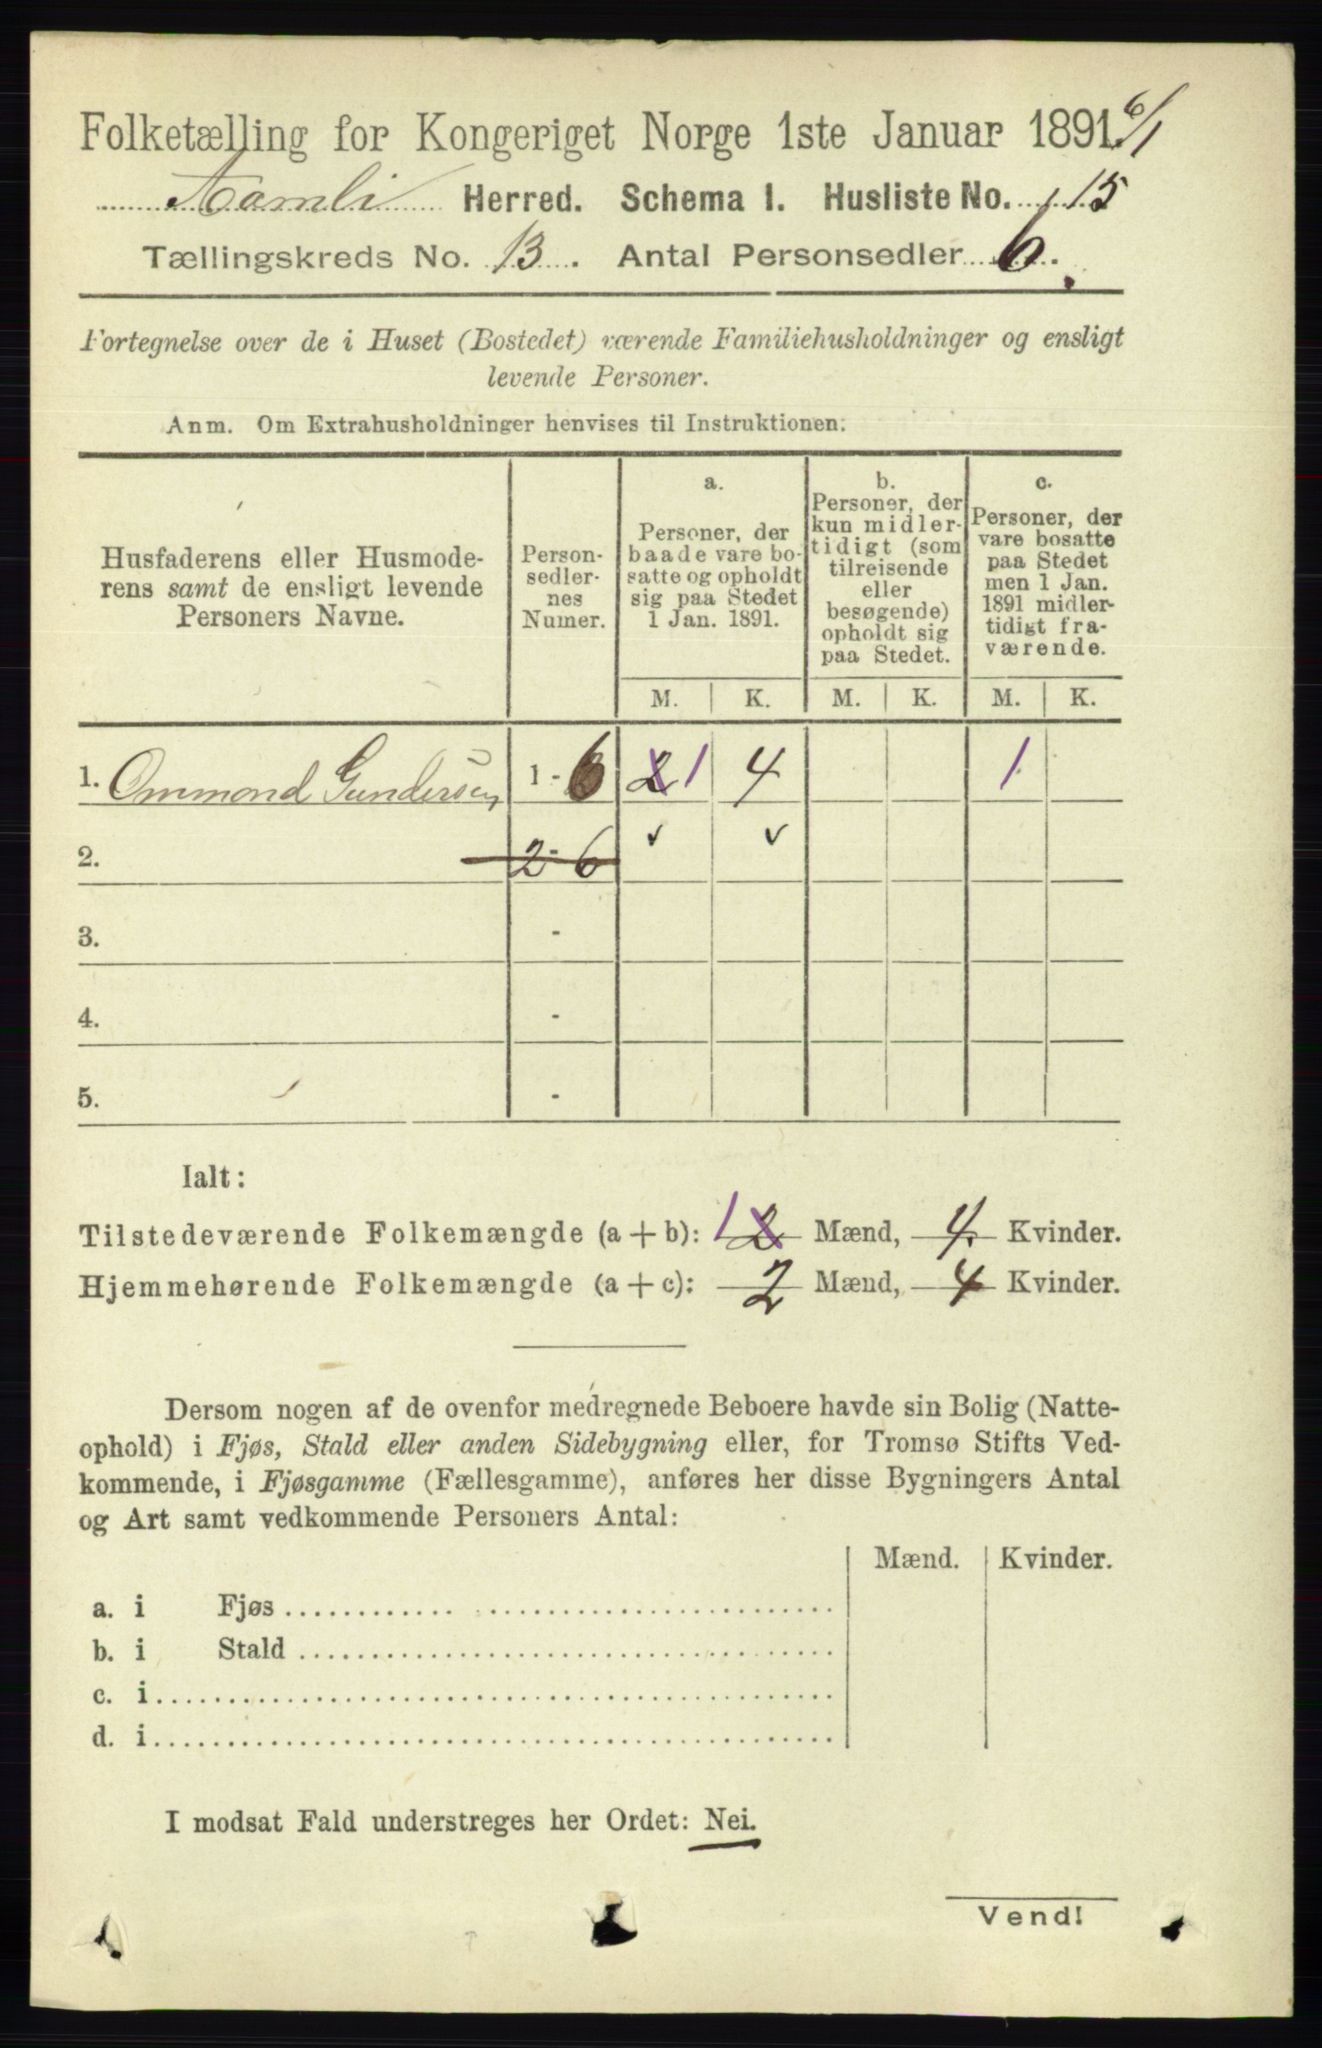 Folketælling for Kongeriget Norge 1ste Januar 1891. 6/1
Aamli Herred. Schema I. Husliste No. 15
Tællingskreds No. 13. Antal Personsedler 6.
Fortegnelse over de i Huset (Bostedet) værende Familiehusholdninger og ensligt
levende Personer.
Anm. Om Extrahusholdninger henvises til Instruktionen.
Husfaderens eller Husmode-
rens samt de ensligt levende
Personers Navne.
Person-
sedler-
nes
Numer.
a.
Personer, der
baade vare bo-
satte og opholdt
sig paa Stedet
1 Jan. 1891.
b.
Personer, der
kun midler-
tidigt (som
tilreisende
eller
besøgende)
opholdt sig
paa Stedet.
c.
Personer, der
vare bosatte
paa Stedet
men 1 Jan.
1891 midler-
tidigt fra-
værende.
M. K. M. K. M. K.
1. Ommond Gundersen 1 - 6 2 1 4 1
2. 2 - 6
3. -
4. -
5. -
Ialt:
Tilstedeværende Folkemængde (a + b): 1 2 Mænd, 4 Kvinder.
Hjemmehørende Folkemængde (a + c): 2 Mænd, 4 Kvinder.
Dersom nogen af de ovenfor medregnede Beboere havde sin Bolig (Natte-
ophold) i Fjøs, Stald eller anden Sidebygning eller, for Tromsø Stifts Ved-
kommende, i Fjøsgamme (Fællesgamme), anføres her disse Bygningers Antal
og Art samt vedkommende Personers Antal:
Mænd. Kvinder.
a. i Fjøs
b. i Stald
c. i
d. i
I modsat Fald understreges her Ordet: Nei.
Vend!